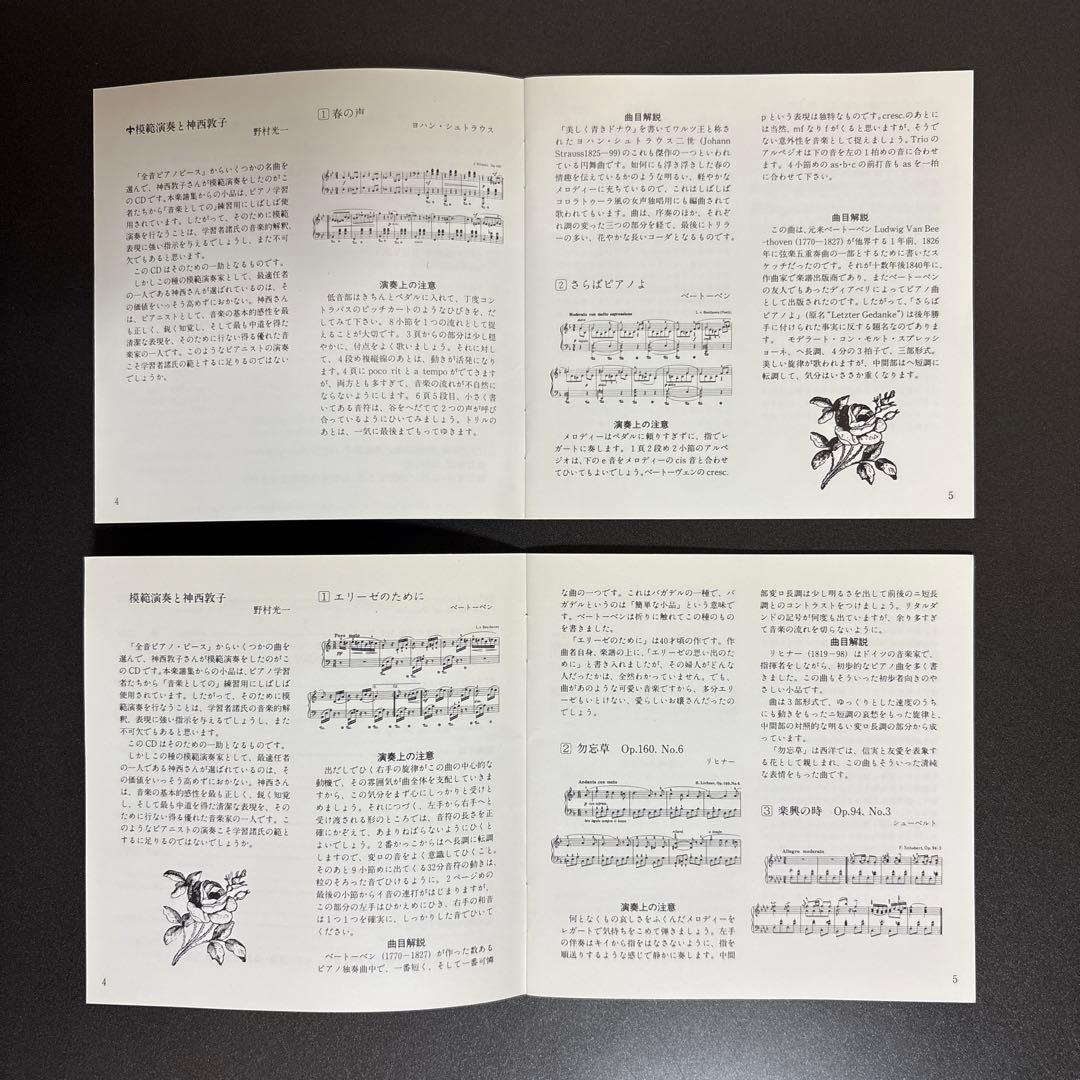 模範演奏と神西敦子
野村光一
「全音ピアノピース」からいくつかの名曲を
選んで、神西敦子さんが模範演奏をしたのがこ
のCDです。本楽譜集からの小品は、ピアノ学習
者たちから「音楽としての」練習用にしばしば使
用されています。したがって、そのために模範
演奏を行なうことは、学習者諸氏の音楽的解釈、
表現に強い指示を与えるでしょうし、また不可
欠でもあると思います。
このCDはそのための一助となるものです。
しかしこの種の模範演奏家として、最適任者
の一人である神西さんが選ばれているのは、そ
の価値をいっそう高めずにおかない。神西さん
は、ピアニストとして、音楽の基本的感性を最
も正しく、鋭く知覚し、そして最も中道を得た
清潔な表現を、そのために行ない得る優れた音
楽家の一人です。このようなピアニストの演奏
こそ学習者諸氏の範とするに足りるのではない
でしょうか。
4
1 春の声
ヨハン・シュトラウス
演奏上の注意
低音部はきちんとペダルに入れて、丁度コン
トラバスのピッチカートのようなひびきを、だ
してみて下さい。8小節を1つの流れとして捉
えることが大切です。3頁からの部分は少し穏
やかに、付点をよく歌いましょう。それに対し
て、4段め複縦線のあとは、動きが活発になり
ます。4頁に poco rit と a tempo がでてきます
が、両方とも多すぎて、音楽の流れが不自然に
ならないようにします。6頁5段目、小さく書
いてある音符は、谷をへだてて2つの声が呼び
合っているようにひいてみましょう。トリルの
あとは、一気に最後までもってゆきます。
曲目解説
「美しく青きドナウ」を書いてワルツ王と称さ
れたヨハン・シュトラウス二世 (Johann
Strauss1825―99)のこれも傑作の一つといわれ
ている円舞曲です。如何にも浮き浮きした春の
情趣を伝えているかのような明るい、軽やかな
メロディーに充ちているので、これはしばしば
コロラトゥーラ風の女声独唱用にも編曲されて
歌われてもいます。曲は、序奏のほか、それぞ
れ調の変った三つの部分を経て、最後にトリラ
ーの多い、花やかな長いコーダとなるものです。
2 さらばピアノよ
ベートーベン
Moderato con molto espressione
演奏上の注意
メロディーはペダルに頼りすぎずに、指でレ
ガートに奏します。1頁2段め2小節のアルペ
ジオは、下のe音をメロディーのcis音と合わせ
てひいてもよいでしょう。ベートーヴェンのcresc.
pという表現は独特なものです。cresc.のあとに
は当然、mfなりfがくると思いますが、そうで
ない意外性を音楽として捉えましょう。Trioの
アルペジオは下の音を左の1拍めの音に合わせ
ます。4小節めのas・b・cの前打音もasを一拍
に合わせて下さい。
曲目解説
この曲は、元来ベートーベンLudwig Van Bee-
thoven (1770―1827) が他界する1年前、1826
年に弦楽五重奏曲の一部とするために書いたス
ケッチだったのです。それが十数年後1840年に、
作曲家で楽譜出版商であり、またベートーベン
の友人でもあったディアベリによってピアノ曲
として出版されたのです。したがって、「さらば
ピアノよ」(原名“Letzter Gedanke”)は後年勝
手に付けられた事実に反する題名なのでありま
す。 モデラート・コン・モルト・エスプレッシ
ョーネ、ヘ長調、4分の3拍子で、三部形式。
美しい旋律が歌われますが、中間部はヘ短調に
転調して、気分はいささか重くなります。
5
模範演奏と神西敦子
野村光一
「全音ピアノ・ピース」からいくつかの曲を
選んで、神西敦子さんが模範演奏をしたのがこ
のCDです。本楽譜集からの小品は、ピアノ学習
者たちから「音楽としての」練習用にしばしば
使用されています。したがって、そのために模
範演奏を行なうことは、学習者諸氏の音楽的解
釈、表現に強い指示を与えるでしょうし、また
不可欠でもあると思います。
このCDはそのための一助となるものです。
しかしこの種の模範演奏家として、最適任者
の一人である神西さんが選ばれているのは、そ
の価値をいっそう高めずにおかない。神西さん
は、音楽の基本的感性を最も正しく、鋭く知覚
し、そして最も中道を得た清潔な表現を、その
ために行ない得る優れた音楽家の一人です。こ
のようなピアニストの演奏こそ学習諸氏の範と
するに足りるのではないでしょうか?
4
1 エリーゼのために
ベートーベン
Poco moto
L.v.Beethoven
演奏上の注意
出だしでひく右手の旋律がこの曲の中心的な
動機で、その雰囲気が曲全体を支配していきま
すから、この気分をまず心にしっかりと受けと
めましょう。それにつづく、左手から右手へと
受け渡される形のところでは、音符の長さを正
確にかぞえて、あまりねばらないようにひくと
よいでしょう。2番かっこからはヘ長調に転調
しますので、変ロの音をよく意識してひくこと。
そのあと9小節めに出てくる32分音符の動きは、
粒のそろった音でひけるように。2ページめの
最後の小節からイ音の連打がはじまりますが、
この部分の左手はひかえめにひき、右手の和音
は1つ1つを確実に、しっかりした音でひいて
ください。
曲目解説
ベートーベン (1770―1827) が作った数ある
ピアノ独奏曲中で、一番短く、そして一番可憐
な曲の一つです。これはバガデルの一種で、バ
ガデルというのは「簡単な小品」という意味で
す。ベートーベンは折りに触れてこの種のもの
を書きました。
「エリーゼのために」は40才頃の作です。作
曲者自身、楽譜の上に、「エリーゼの思い出のた
めに」と書き入れましたが、その婦人がどんな
人だったかは、全然わかっていません。でも、
曲があのような可愛い音楽ですから、多分エリ
ーゼもいとけない、愛らしいお嬢さんだったの
でしょう。
2 勿忘草 Op.160. No.6
リヒナー
Andante con moto
H. Lichner, Op.160, No.6
演奏上の注意
何となくもの哀しさをふくんだメロディーを
レガートで気持ちをこめて弾きましょう。左手
の伴奏はキイから指をはなさないように、指を
順送りするような感じで静かに奏します。中間
部変ロ長調は少し明るさを出して前後のニ短長
調とのコントラストをつけましょう。リタルダ
ンドの記号が何度も出ていますが、余り多すぎ
て音楽の流れを切らないように。
曲目解説
リヒナー (1819―98) はドイツの音楽家で、
指揮者をしながら、初歩的なピアノ曲を多く書
きました。この曲もそういった初歩者向きのや
さしい小品です。
曲は3部形式で、ゆっくりとした速度のうち
にも動きをもったニ短調の哀愁をもった旋律と、
中間部の対照的な明るい変ロ長調の部分から成
っています。
「勿忘草」は西洋では、信実と友愛を表象す
る花として親しまれ、この曲もそういった清純
な表情をもった曲です。
3 楽興の時 Op.94. No.3
シューベルト
Allegro moderato
F. Schubert, Op.94-3
5